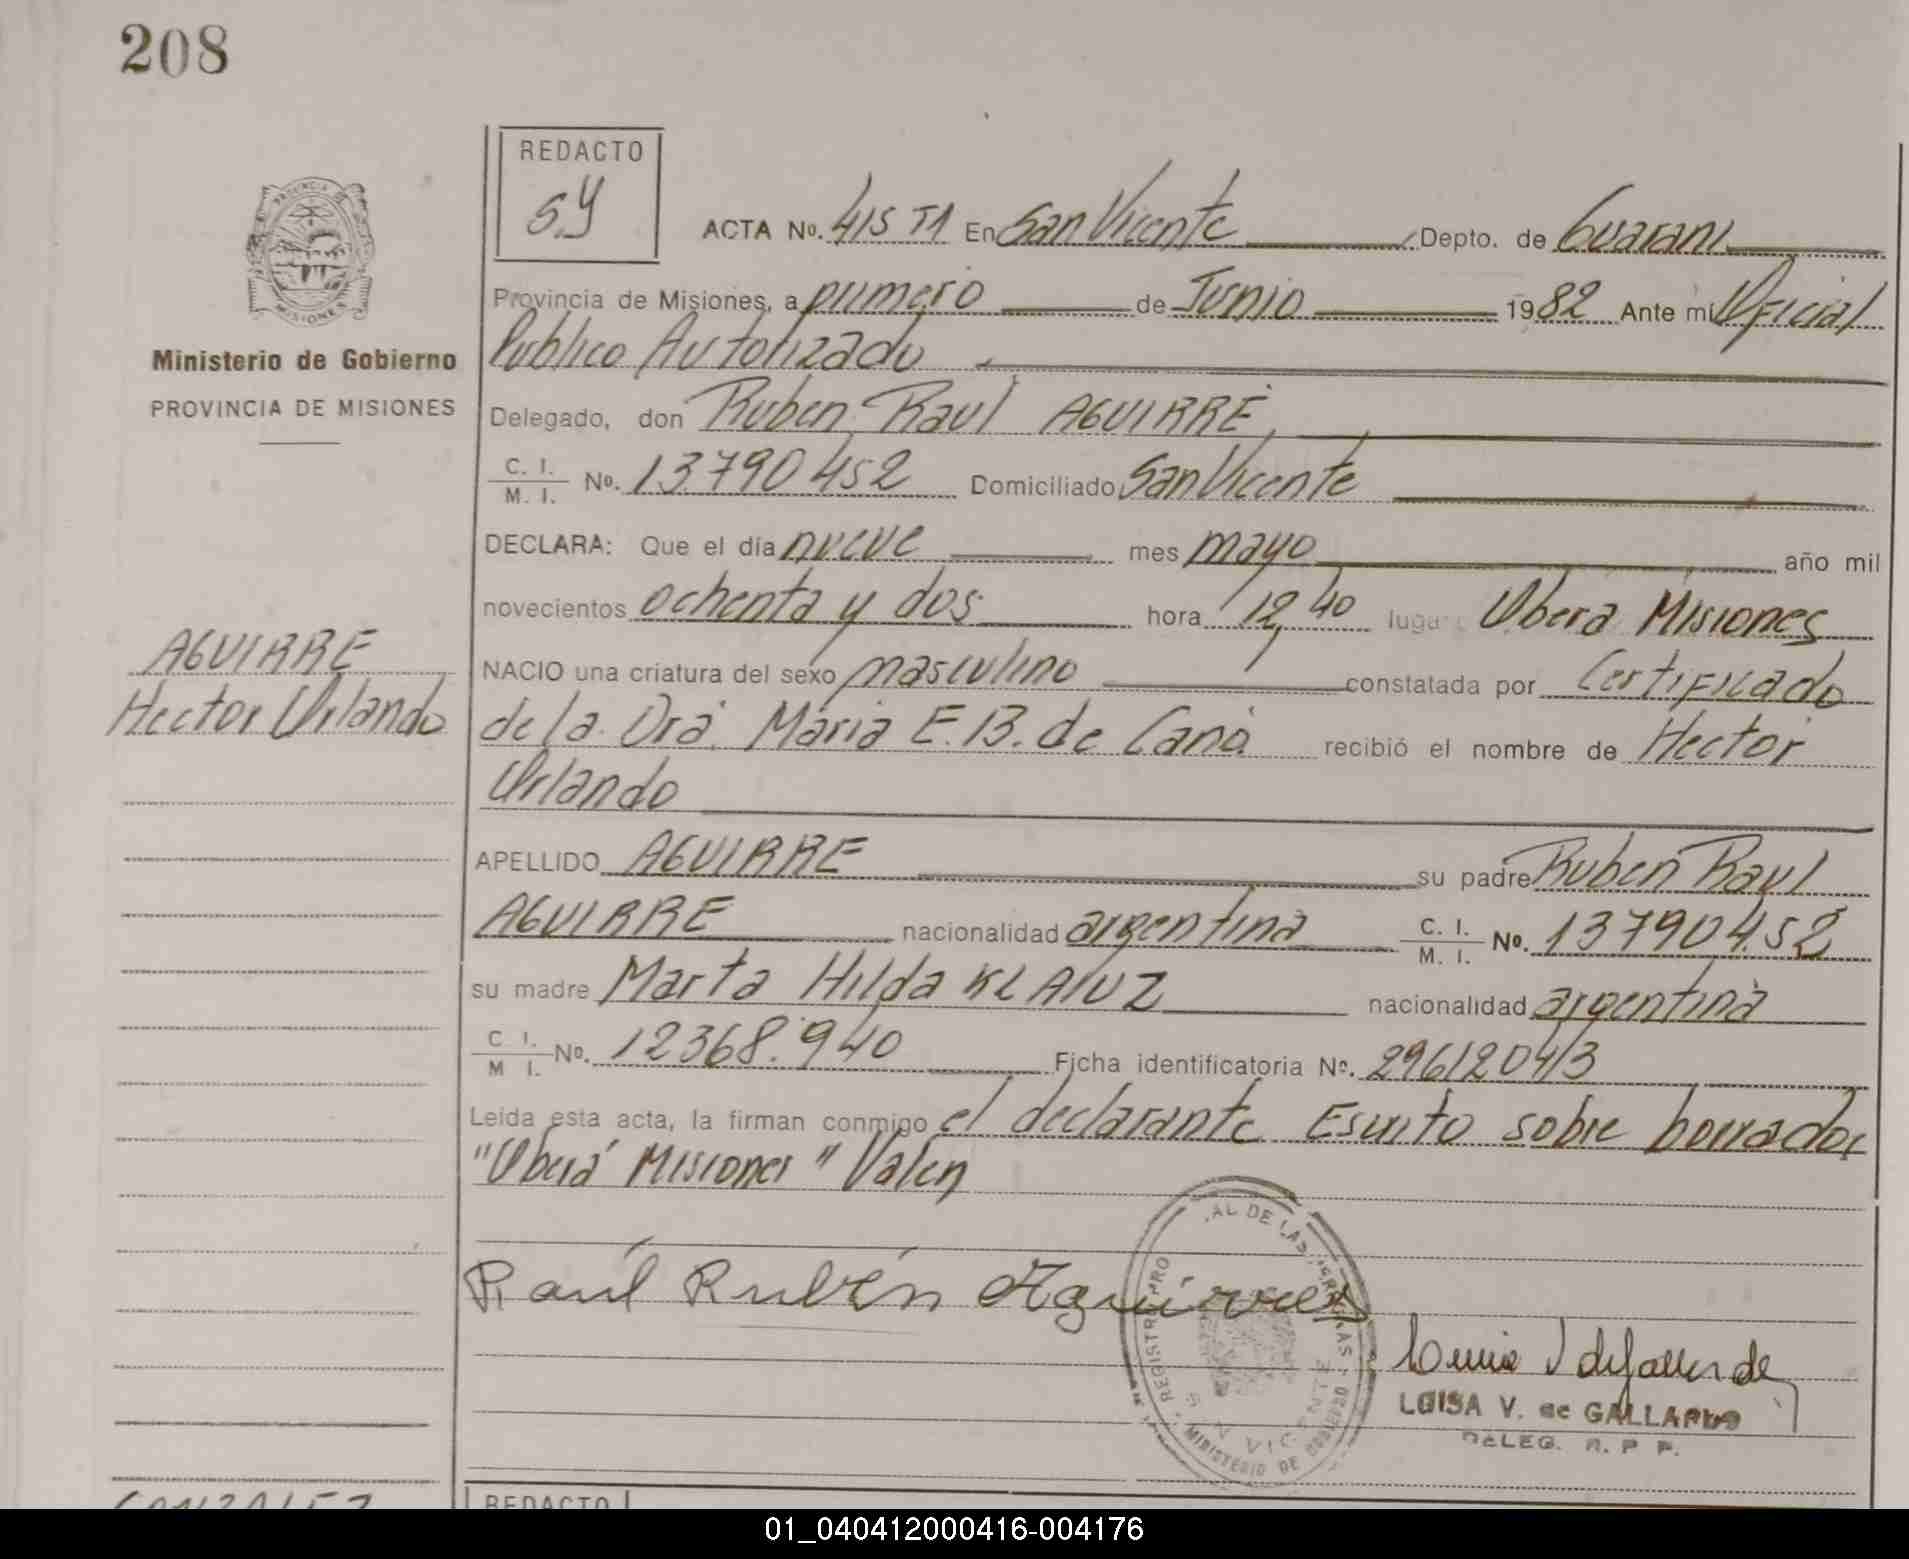 208
REDACTO
S.Y
ACTA No. 415 T1 En San Vicente Depto. de Guarani
Provincia de Misiones, a primero de Junio 1982 Ante mi Oficial
Publico Autorizado
Delegado, don Ruben Raul AGUIRRE
C. I.
M. I. No. 13.790 452 Domiciliado San Vicente
DECLARA: Que el día nueve mes mayo año mil
novecientos ochenta y dos hora 12,40 lugar Oberá Misiones
NACIO una criatura del sexo masculino constatada por Certificado
de la Dra. Maria E. B. de Cano recibió el nombre de Hector
Orlando
APELLIDO AGUIRRE su padre Ruben Raul
AGUIRRE nacionalidad argentina C. I.
M. I. No. 13790452
su madre Marta Hilda nacionalidad argentina
C. I.
M. I. No. 12368.940 Ficha identificatoria No. 29612043
Leida esta acta, la firman conmigo el declarante Escrito sobre borrador
"Oberá Misiones" Valen
Raúl Rubén Aguirre
LUISA V. de GALLARDO
DELEG. R. P. P.
PROVINCIA DE
MISIONES
Ministerio de Gobierno
PROVINCIA DE MISIONES
AGUIRRE
Hector Orlando
REGISTRO
AL DE LAS
MINISTERIO DE GOBIERNO
SAN VICENTE
GONZALEZ
REDACTO
01_040412000416-004176